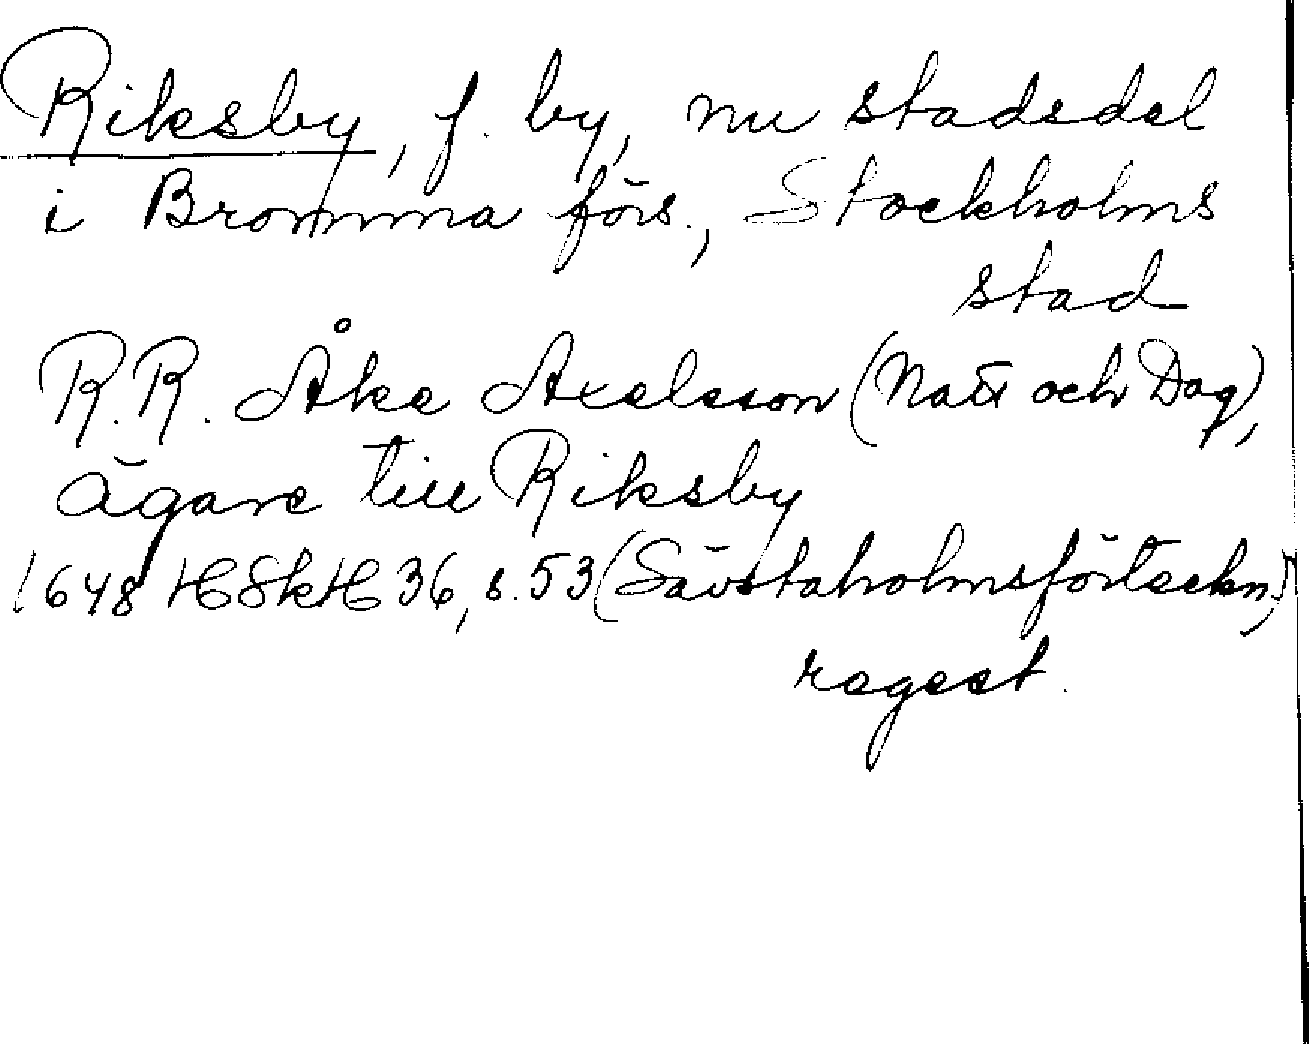 Riksby, f. by, nu stadsdel
i Bromma förs., Stockholms
stad
R.R. Åke Axelsson (Natt och Dag),
ägare till Riksby
1648 HSkH 36, s. 53 (Sävstaholmsförteckn.)
regest.